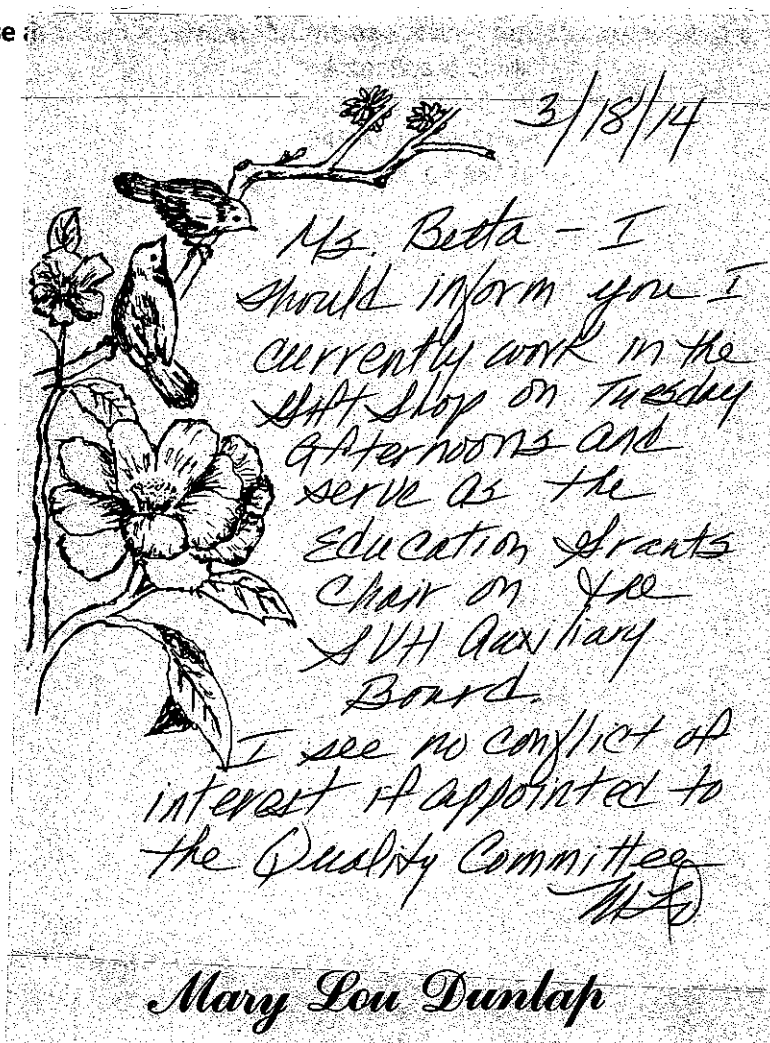 3/18/14
Ms. Betta - I
should inform you I
currently work in the
Gift Shop on Tuesday
afternoons and
serve as the
Education Grants
Chair on the
SVH Auxiliary
Board.
I see no conflict of
interest if appointed to
the Quality Committee
MLD
Mary Lou Dunlap